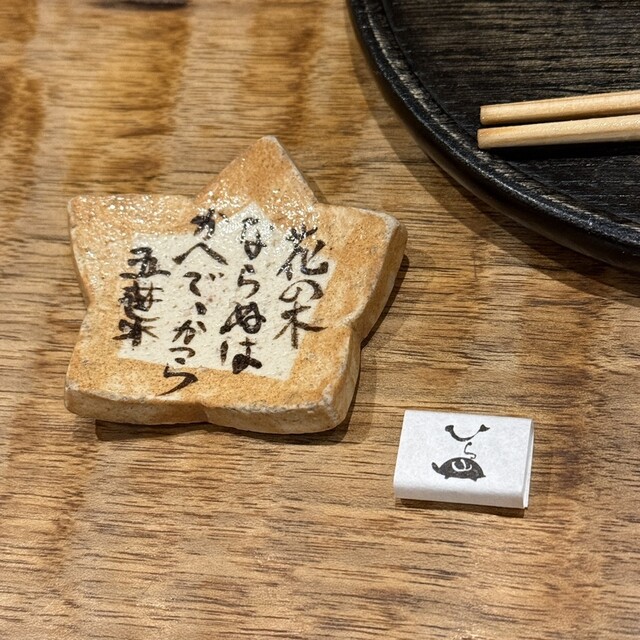 花の木
ならぬは
かへで、かつら
五葉
ひら